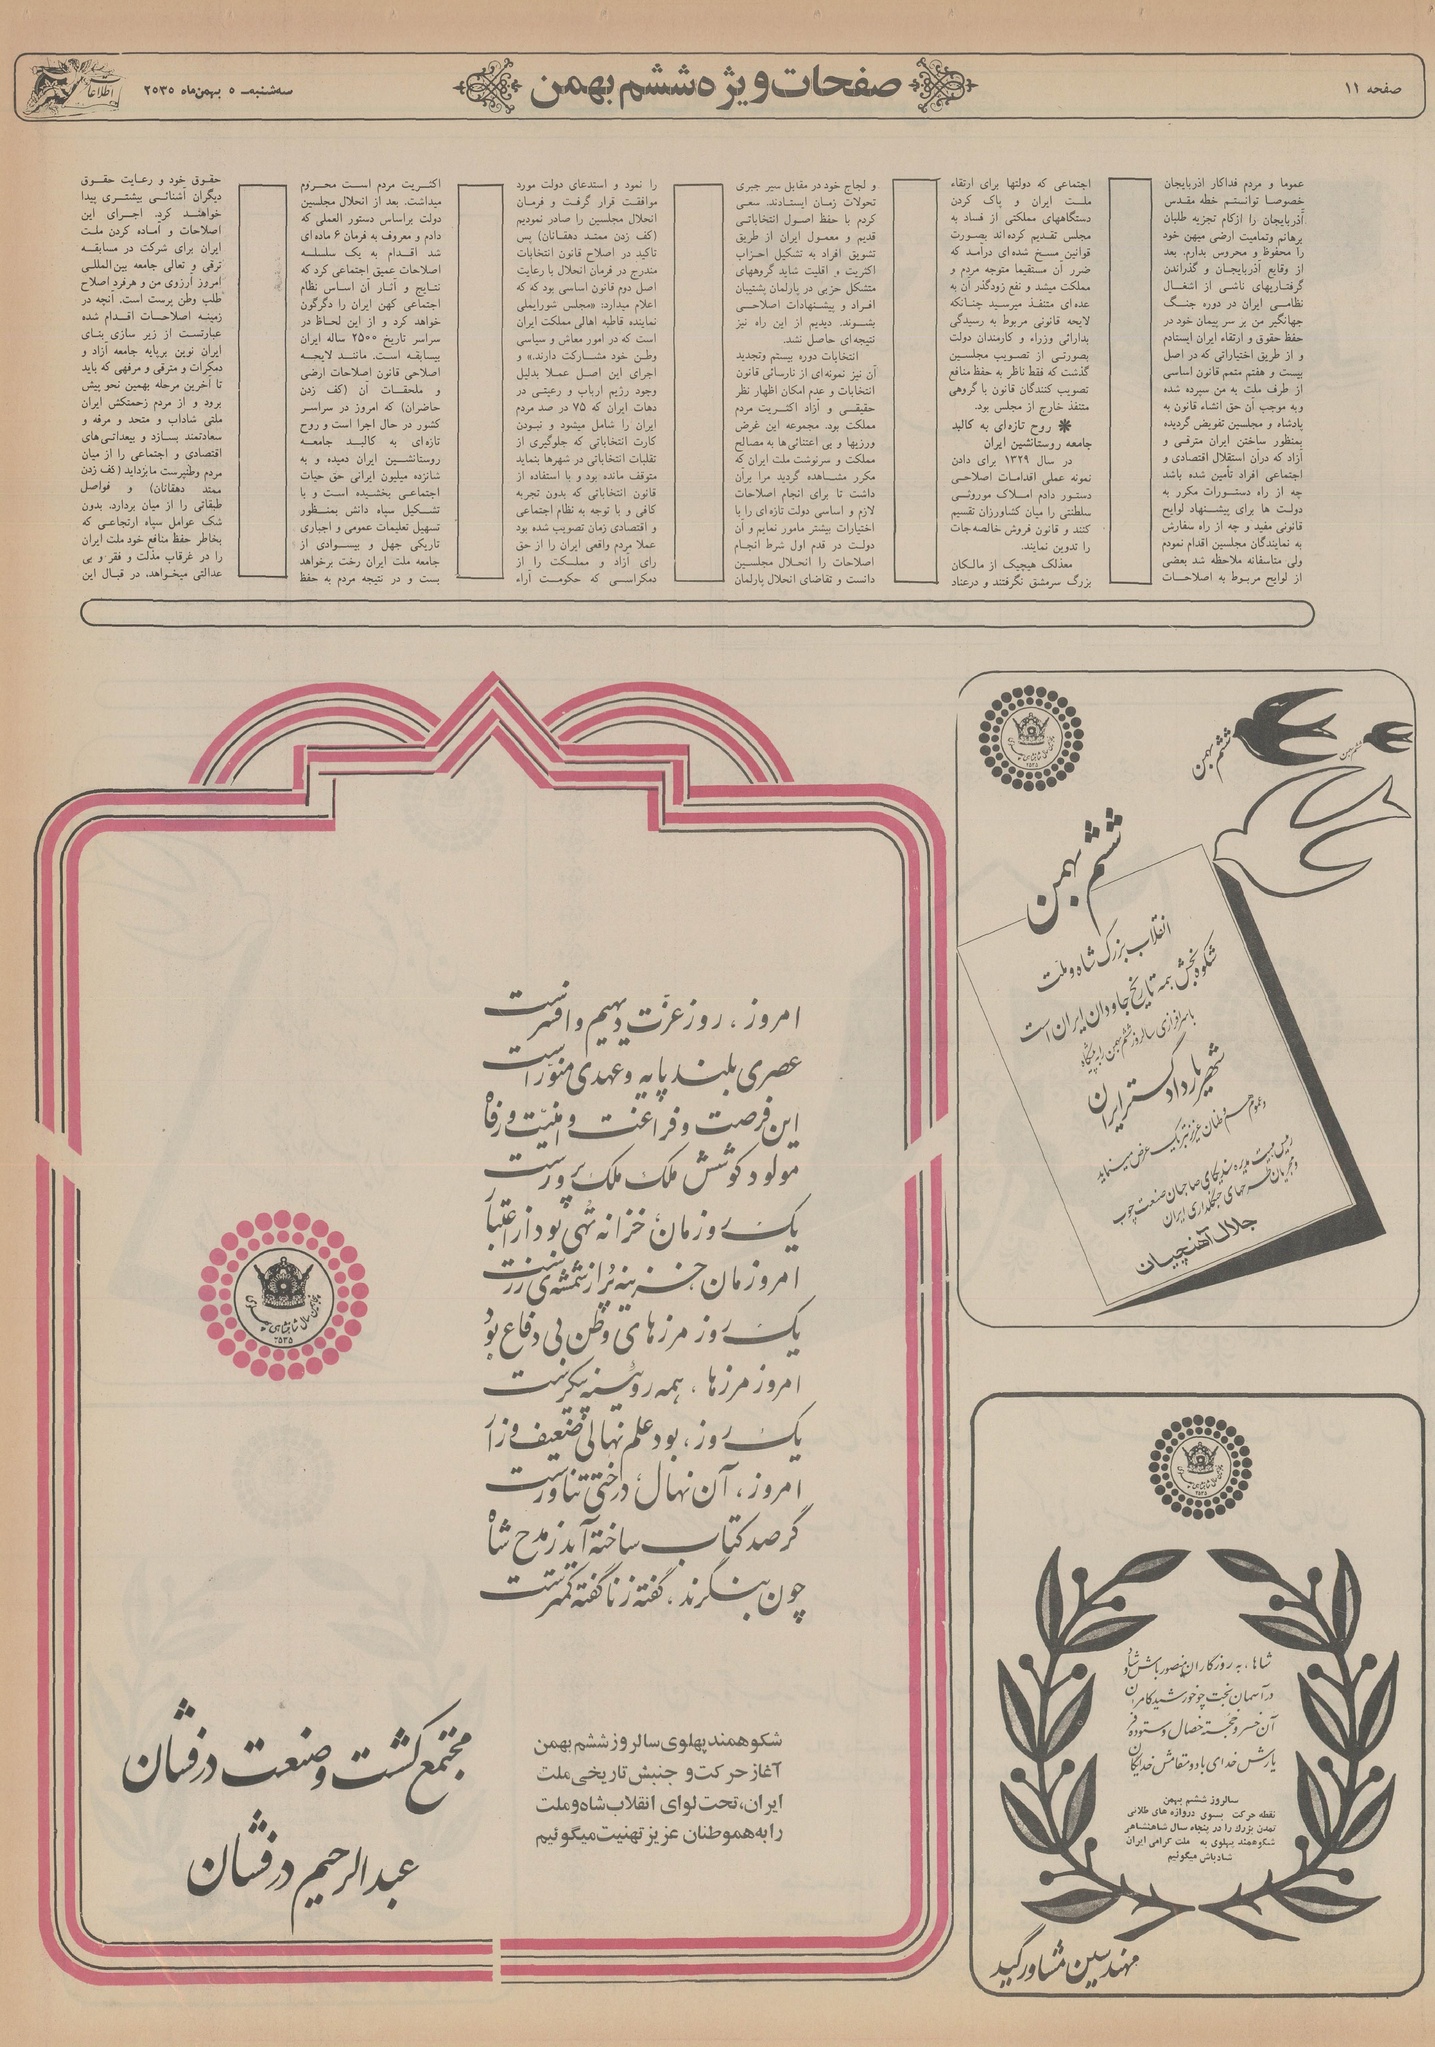 صفحه ۱۱
صفحات ویژه ششم بهمن
سه‌شنبه ۵ بهمن‌ماه ۲۵۳۵
اطلاعات
عموما و مردم فداکار آذربایجان
خصوصا توانستم خطه مقدس
آذربایجان را ازکام تجزیه طلبان
برهانم وتمامیت ارضی میهن خود
را محفوظ و محروس بدارم. بعد
از وقایع آذربایجان و گذراندن
گرفتاریهای ناشی از اشغال
نظامی ایران در دوره جنگ
جهانگیر من بر سر پیمان خود در
حفظ حقوق و ارتقاء ایران ایستادم
و از طریق اختیاراتی که در اصل
بیست و هفتم متمم قانون اساسی
از طرف ملت به من سپرده شده
وبه موجب آن حق انشاء قانون به
پادشاه و مجلسین تفویض گردیده
بمنظور ساختن ایران مترقی و
آزاد که درآن استقلال اقتصادی و
اجتماعی افراد تأمین شده باشد
چه از راه دستورات مکرر به
دولت ها برای پیشنهاد لوایح
قانونی مفید و چه از راه سفارش
به نمایندگان مجلسین اقدام نمودم
ولی متاسفانه ملاحظه شد بعضی
از لوایح مربوط به اصلاحات
اجتماعی که دولتها برای ارتقاء
ملت ایران و پاک کردن
دستگاههای مملکتی از فساد به
مجلس تقدیم کرده اند بصورت
قوانین مسخ شده ای درآمد که
ضرر آن مستقیما متوجه مردم و
مملکت میشد و نفع زودگذر آن به
عده ای متنفذ میرسید چنانکه
لایحه قانونی مربوط به رسیدگی
بدارائی وزراء و کارمندان دولت
بصورتی از تصویب مجلسین
گذشت که فقط ناظر به حفظ منافع
تصویب کنندگان قانون با گروهی
متنفذ خارج از مجلس بود.
✱ روح تازه‌ای به کالبد
جامعه روستانشین ایران
در سال ۱۳۲۹ برای دادن
نمونه عملی اقدامات اصلاحی
دستور دادم املاک موروثی
سلطنتی را میان کشاورزان تقسیم
کنند و قانون فروش خالصه جات
را تدوین نمایند.
معذلک هیچیک از مالکان
بزرگ سرمشق نگرفتند و درعناد
و لجاج خود در مقابل سیر جبری
تحولات زمان ایستادند. سعی
کردم با حفظ اصول انتخاباتی
قدیم و معمول ایران از طریق
تشویق افراد به تشکیل احزاب
اکثریت و اقلیت شاید گروههای
متشکل حزبی در پارلمان پشتیبان
افراد و پیشنهادات اصلاحی
بشوند. دیدیم از این راه نیز
نتیجه‌ای حاصل نشد.
انتخابات دوره بیستم وتجدید
آن نیز نمونه‌ای از نارسائی قانون
انتخابات و عدم امکان اظهار نظر
حقیقی و آزاد اکثریت مردم
مملکت بود. مجموعه این غرض
ورزیها و بی اعتنائی‌ها به مصالح
مملکت و سرنوشت ملت ایران که
مکرر مشاهده گردید مرا برآن
داشت تا برای انجام اصلاحات
لازم و اساسی دولت تازه‌ای را با
اختیارات بیشتر مامور نمایم و آن
دولت در قدم اول شرط انجام
اصلاحات را انحلال مجلسین
دانست و تقاضای انحلال پارلمان
را نمود و استدعای دولت مورد
موافقت قرار گرفت و فرمان
انحلال مجلسین را صادر نمودیم
(کف زدن ممتد دهقانان) پس
تاکید در اصلاح قانون انتخابات
مندرج در فرمان انحلال با رعایت
اصل دوم قانون اساسی بود که که
اعلام میدارد: «مجلس شورایملی
نماینده قاطبه اهالی مملکت ایران
است که در امور معاش و سیاسی
وطن خود مشارکت دارند.» و
اجرای این اصل عملا بدلیل
وجود رژیم ارباب و رعیتی در
دهات ایران که ۷۵ در صد مردم
ایران را شامل میشود و نبودن
کارت انتخاباتی که جلوگیری از
تقلبات انتخاباتی در شهرها بنماید
متوقف مانده بود و با استفاده از
قانون انتخاباتی که بدون تجربه
کافی و با توجه به نظام اجتماعی
و اقتصادی زمان تصویب شده بود
عملا مردم واقعی ایران را از حق
رای آزاد و مملکت را از
دمکراسی که حکومت آراء
اکثریت مردم است محروم
میداشت. بعد از انحلال مجلسین
دولت براساس دستور العملی که
دادم و معروف به فرمان ۶ ماده ای
شد اقدام به یک سلسله
اصلاحات عمیق اجتماعی کرد که
نتایج و آثار آن اساس نظام
اجتماعی کهن ایران را دگرگون
خواهد کرد و از این لحاظ در
سراسر تاریخ ۲۵۰۰ ساله ایران
بیسابقه است. مانند لایحه
اصلاحی قانون اصلاحات ارضی
و ملحقات آن (کف زدن
حاضران) که امروز در سراسر
کشور در حال اجرا است و روح
تازه‌ای به کالبد جامعه
روستانشین ایران دمیده و به
شانزده میلیون ایرانی حق حیات
اجتماعی بخشیده است و با
تشکیل سپاه دانش بمنظور
تسهیل تعلیمات عمومی و اجباری
تاریکی جهل و بیسوادی از
جامعه ملت ایران رخت برخواهد
بست و در نتیجه مردم به حفظ
حقوق خود و رعایت حقوق
دیگران آشنائی بیشتری پیدا
خواهند کرد. اجرای این
اصلاحات و آماده کردن ملت
ایران برای شرکت در مسابقه
ترقی و تعالی جامعه بین‌المللی
امروز آرزوی من و هرفرد اصلاح
طلب وطن پرست است. آنچه در
زمینه اصلاحات اقدام شده
عبارتست از زیر سازی بنای
ایران نوین برپایه جامعه آزاد و
دمکرات و مترقی و مرفهی که باید
تا آخرین مرحله بهمین نحو پیش
برود و از مردم زحمتکش ایران
ملتی شاداب و متحد و مرفه و
سعادتمند بسازد و بیعدالتی‌های
اقتصادی و اجتماعی را از میان
مردم وطنپرست مابزداید (کف زدن
ممتد دهقانان) و فواصل
طبقاتی را از میان بردارد. بدون
شک عوامل سیاه ارتجاعی که
بخاطر حفظ منافع خود ملت ایران
را در غرقاب مذلت و فقر و بی
عدالتی میخواهد، در قبال این
ششم بهمن
ششم بهمن
ششم بهمن
انقلاب بزرگ شاه و ملت
شکوه بخش همه تاریخ جاودان ایران است
با سرافرازی سالروز ششم بهمن را به پیشگاه
شهریار دادگستر ایران
و عموم هم وطنان عزیز تبریک عرض مینماید
رئیس هیئت مدیره سندیکای صاحبان صنعت چوب
و مجریان طرحهای جنگلداری ایران
جلال آهنچیان
امروز، روز عزت دیهیم و افسرست
عصری بلند پایه و عهدی منوّرست
این فرصت و فراغت و امنیت و رفاه
مولود کوشش ملک ملک پرورست
یک روزمان، خزانه تهی بود از اعتبار
امروزمان، خزینه پُر از شمشه‌ی زرست
یک روز مرزهای وطن بی دفاع بود
امروز مرزها، همه روئینه پیکرست
یک روز، بود علم نهالی ضعیف و زار
امروز، آن نهال، درختی تناورست
گر صد کتاب ساخته آید ز مدح شاه
چون بنگرند، گفته ز ناگفته کمترست
پنجاهمین سال شاهنشاهی پهلوی
۲۵۳۵
شکوهمند پهلوی سالروز ششم بهمن
آغاز حرکت و جنبش تاریخی ملت
ایران، تحت لوای انقلاب شاه و ملت
را به هموطنان عزیز تهنیت میگوئیم
مجتمع کشت و صنعت درفشان
عبدالرحیم درفشان
شاها، به روزگاران منصور باش و شاد
در آسمان بخت چو خورشید کامران
آن خسرو خجسته خصال و ستوده فر
یارش خدای باد و مقامش خدایگان
سالروز ششم بهمن
نقطه حرکت بسوی دروازه های طلائی
تمدن بزرگ را در پنجاه سال شاهنشاهی
شکوهمند پهلوی به ملت گرامی ایران
شادباش میگوئیم
مهندسین مشاور گید